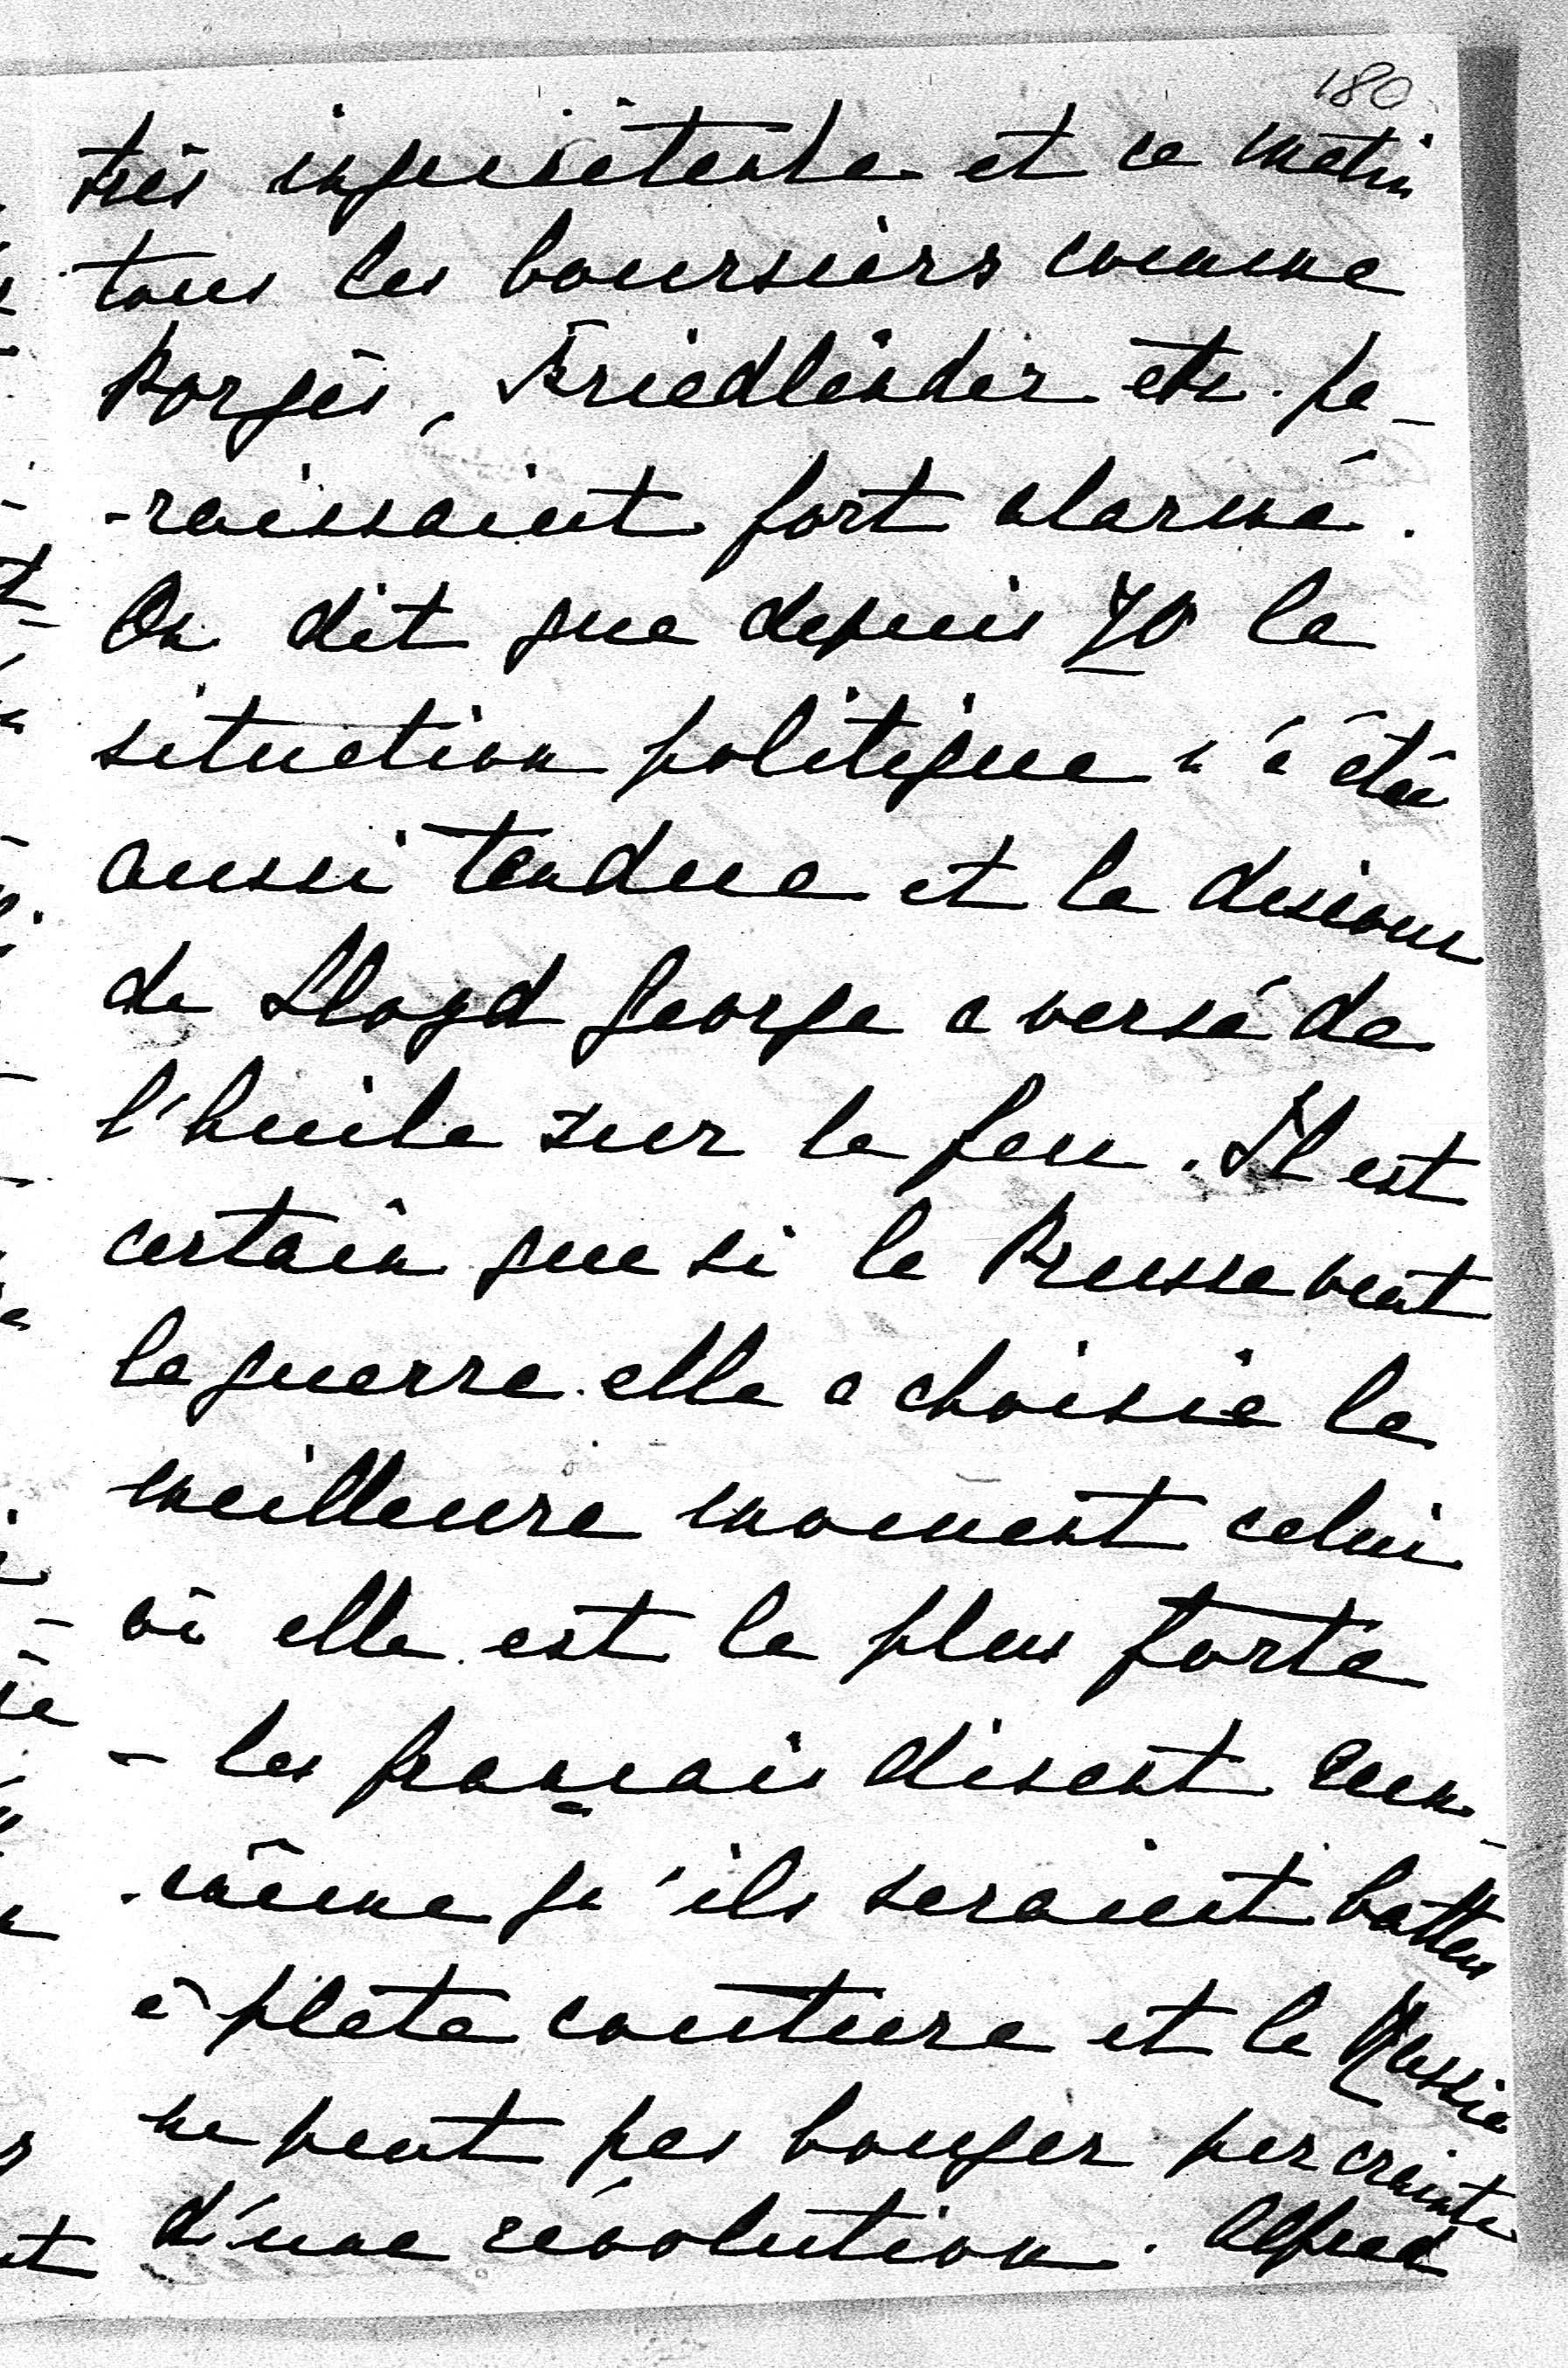 180
très inquiétante et ce matin
tous les boursiers comme
Porgès, Friedländer etc. pa-
-raissaient fort alarmé.
On dit que depuis 70 la
situation politique n'a étée
aussi tendue et le discour
de Lloyd George a versé de
l'huile sur le feu. Il est
certain que si la Prusse veut
la guerre elle a choisie le
meilleure moment celui
où elle est la plus forte
- les français disent eux-
-même qu'ils seraient battus
à plate couture et la Russie
ne peut pas bouger par crainte
d'une révolution. Alfred